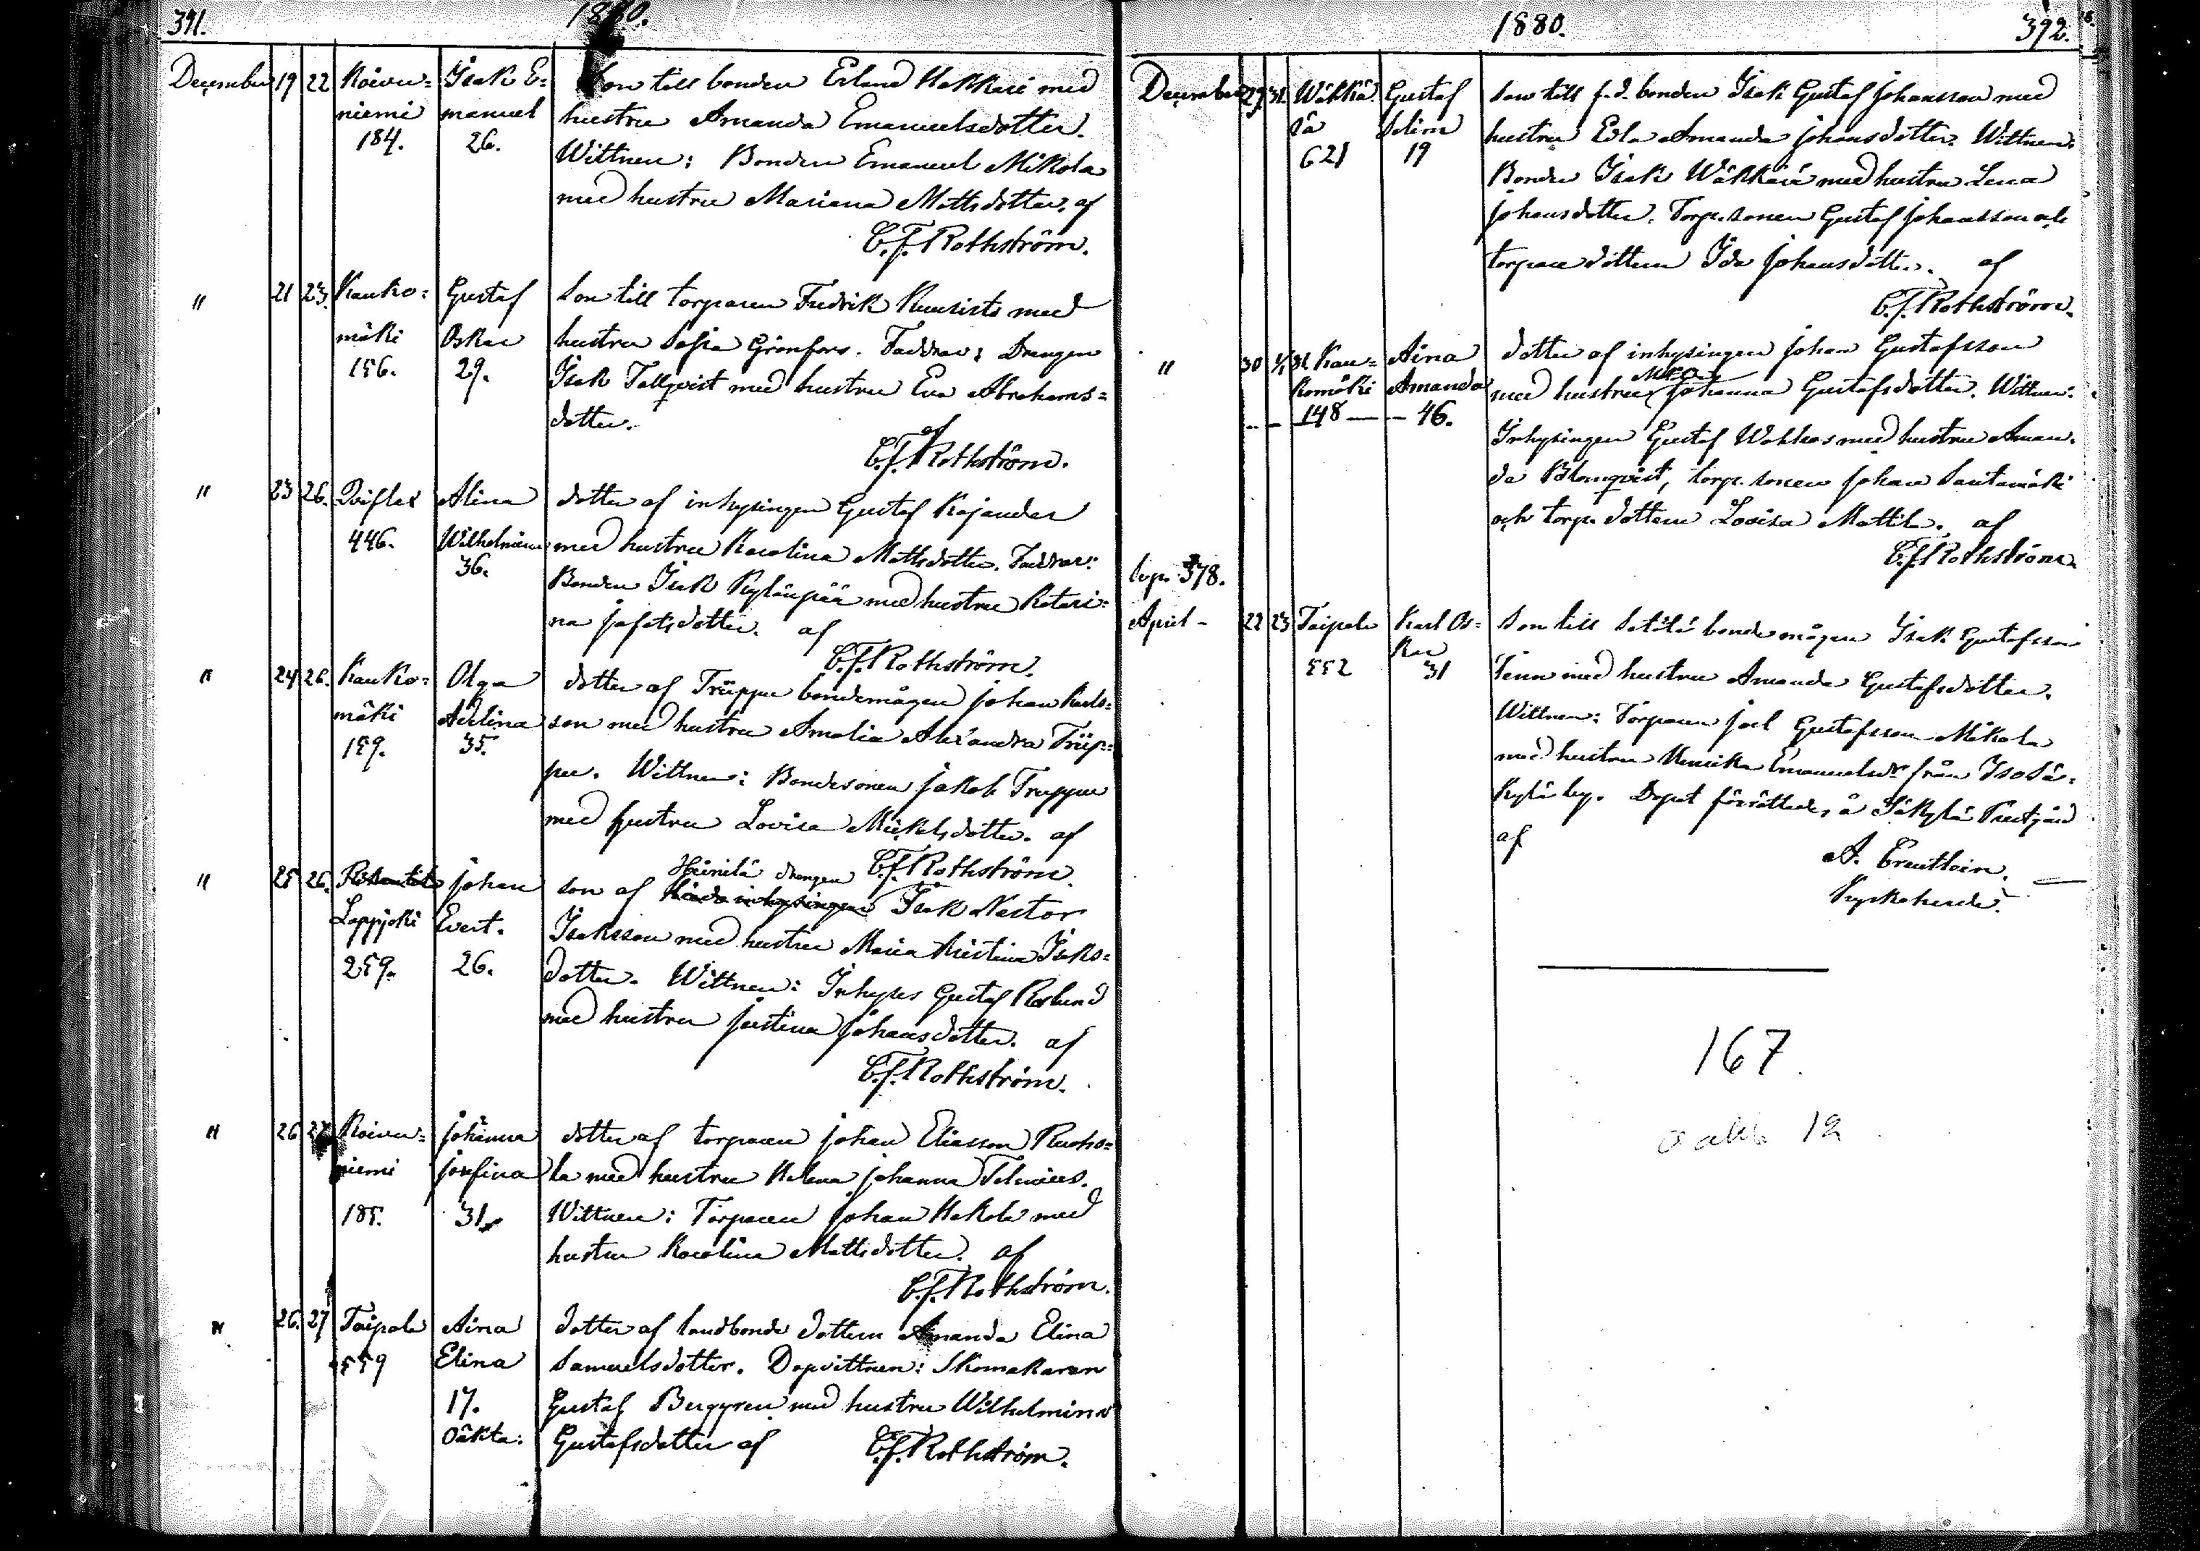 391.
1880.
December 19 22 Koivu= Isak E= Son till bonden Erland Hakkari med
niemi manuel hustru Amanda Emanuelsdotter.
184. 26. Wittnen: Bonden Emanuel Mikola
med hustru Mariana Mattsdotter. af
C. f. Rothström.
" 21 23. Kauko= Gustaf Son till torparen Fredrik Kuusisto med
mäki Oskar hustru Sofia Grönfors. Faddrar: Drengen
156. 29. Isak Tallqvist med hustru Eva Abrahams=
dotter.
af
C. f. Rothström.
" 23 26. Alina dotter af inhysingen Gustaf Kajander
446. Wilhelmina med hustru Karolina Mattsdotter. Faddrar:
36. Bonden Isak Kylänpää med hustru Katari=
na Jafetsdotter. af
C. f. Rothström.
" 24 26. Kauko= Olga dotter af Trüppu bondemågen Johan Karls=
mäki Adelina son med hustru Amalia Alexandra Trüp=
159. 35. pu. Wittnen: Bondesonen Jakob Truppu
med hustru Lovisa Mickelsdotter. af
C. f. Rothström.
" 25 26. Johan son af Heinilä drengen Isak Nestor
Lappjoki Evert. Isaksson med hustru Maria Kristina Isaks=
259. 26. dotter. Wittnen: Inhyses Gustaf Roslund
med hustru Justina Johansdotter. af
C. f. Rothström.
" 26 27 Koivu= Johanna dotter af torparen Johan Eliasson Ruoho=
niemi Josefina la med hustru Helena Johanna
185. 31. Wittnen: Torparen Johan Hakola med
hustru Karolina Mattsdotter. af
C. f. Rothström.
" 26. 27 Taipale Aina dotter af landbonde dottern Amanda Elina
559 Elina Samuelsdotter. Dopvittnen: Skomakaren
17. Gustaf Berggren med hustru Wilhelmina
Oäkta: Gustafsdotter af C. f. Rothström.
1880.
392.
December 29 31. Wäkkä= Gustaf Son till f.d. bonden Isak Gustaf Johansson med
rä Selim hustru Edla Amanda Johansdotter. Wittnen:
621 19 Bonden Isak Wäkkärä med hustru Lena
Johansdotter. Torp. sonen Gustaf Johansson och
torpare dottern Ida Johansdotter. af
C. f. Rothström.
" 30 31. Kau= Aina dotter af inhysingen Johan Gustafsson
komäki Amanda med hustru Johanna Gustafsdotter. Wittnen:
148 46. Inhysingen Gustaf Wakkas med hustru Aman=
da Blomqvist, torp. sonen Johan Santamäki
och torp. dottern Lovisa Mattila. af
C. f. Rothström.
378.
April 22 23 Taipale Karl Os= Son till Setälä bonde mågen Isak Gustafsson
kar
552 31 med hustru Amanda Gustafsdotter.
Wittnen: Torparen Joel Gustafsson Mikola
med hustru Ulrika Emanuelsdr från Isosä=
kylä by. Dopet förrättades å Säkylä Prestgård
af
A. Breitholm.
Kyrkoherde.
167.